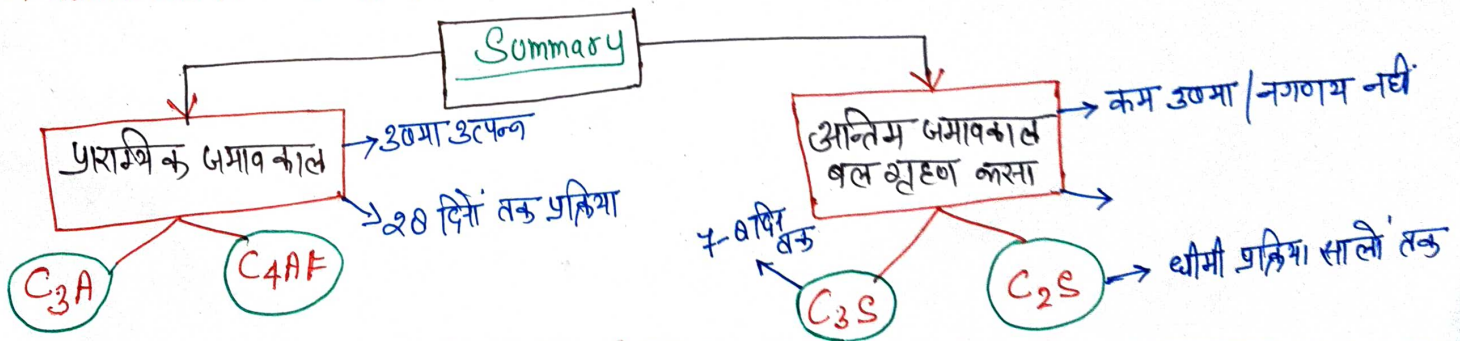 Summary
प्रारम्भिक जमावकाल
→ उष्मा उत्पन्न
→ 28 दिनों तक प्रक्रिया
C3A
C4AF
अन्तिम जमावकाल
बल ग्रहण करना
→ कम उष्मा / नगणय नहीं
7-8 दिन
तक
C3S
C2S
→ धीमी प्रक्रिया सालों तक